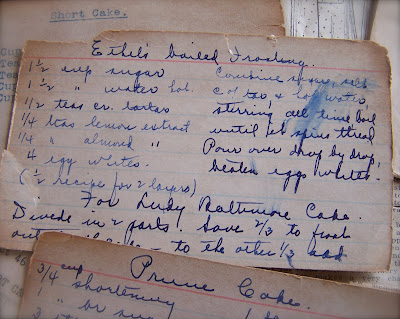 Short Cake.
Cup
Teas
Teas
Cup
Cup
Ethel's boiled Frosting.
1 1/2 cup sugar
1 1/2 " water hot.
1/2 teas cr. tartar
1/4 teas lemon extract
1/4 " almond "
4 egg whites.
(1/2 recipe for 2 layers)
Combine sugar, 
of tar, & hot water,
stirring all time boil
until it spins thread
Pour over drop by drop,
beaten eggs whites.
For Lady Baltimore Cake.
Devede in 2 parts save 2/3 to frost
outside to the other 1/3 add
Prune Cake.
3/4 cup shortening
" br sug